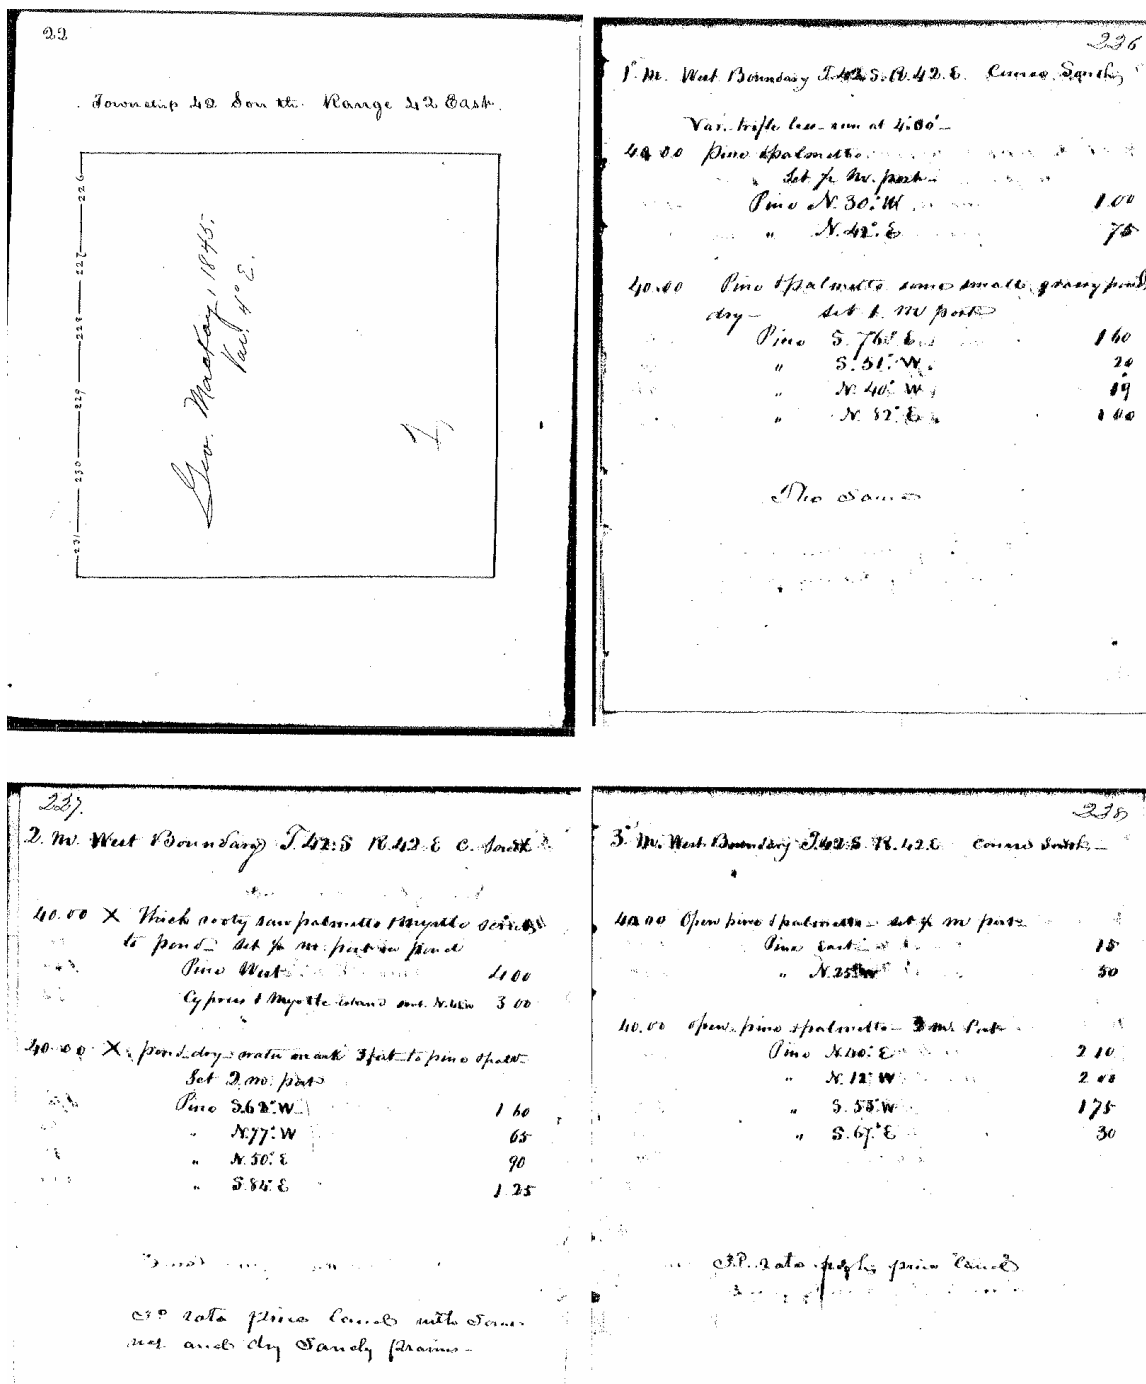 22
Township 42 South. Range 42 East.
226
227
228
229
230
231
Geo. Mackay, 1845.
Var. 4° E.
226
1st M. West Boundary T.42.S. R.42.E. Course South,
Var. trifle less run at 4.00'
40.00 pine & palmetto
Set ½ M. post
Pine N. 30° W 1.00
" N. 42° E 75
40.00 Pine & palmetto some small grassy ponds
dry set 1. M post
Pine S. 76° E. 1 60
" S. 51° W. 20
" N. 40° W. 19
" N. 82° E. 1 00
The Same
237.
2. M. West Boundary T.42.S R.42.E C. South
40.00 X Thick rooty saw palmetto & myrtle
to pond set ½ m. post in pond
Pine West 4 00
Cypress & Myrtle island 3 00
40.00 X pond dry water mark 3 feet to pine & palm
Set 2 m. post
Pine S.62° W 1 60
" N.77° W 65
" N.50° E 90
" S.84° E 1.25
3d rate pine land with some
wet and dry Sandy prairies
238
3d M. West Boundary T.42.S. R.42.E Course South,
40.00 Open pine & palmetto set ½ m post
Pine East 15
" N.25° W 50
40.00 Open pine & palmetto 3 m. Post
Pine N.40° E 2 10
" N.12° W 2 00
" S.55° W 175
" S.67° E 30
3d rate pine land